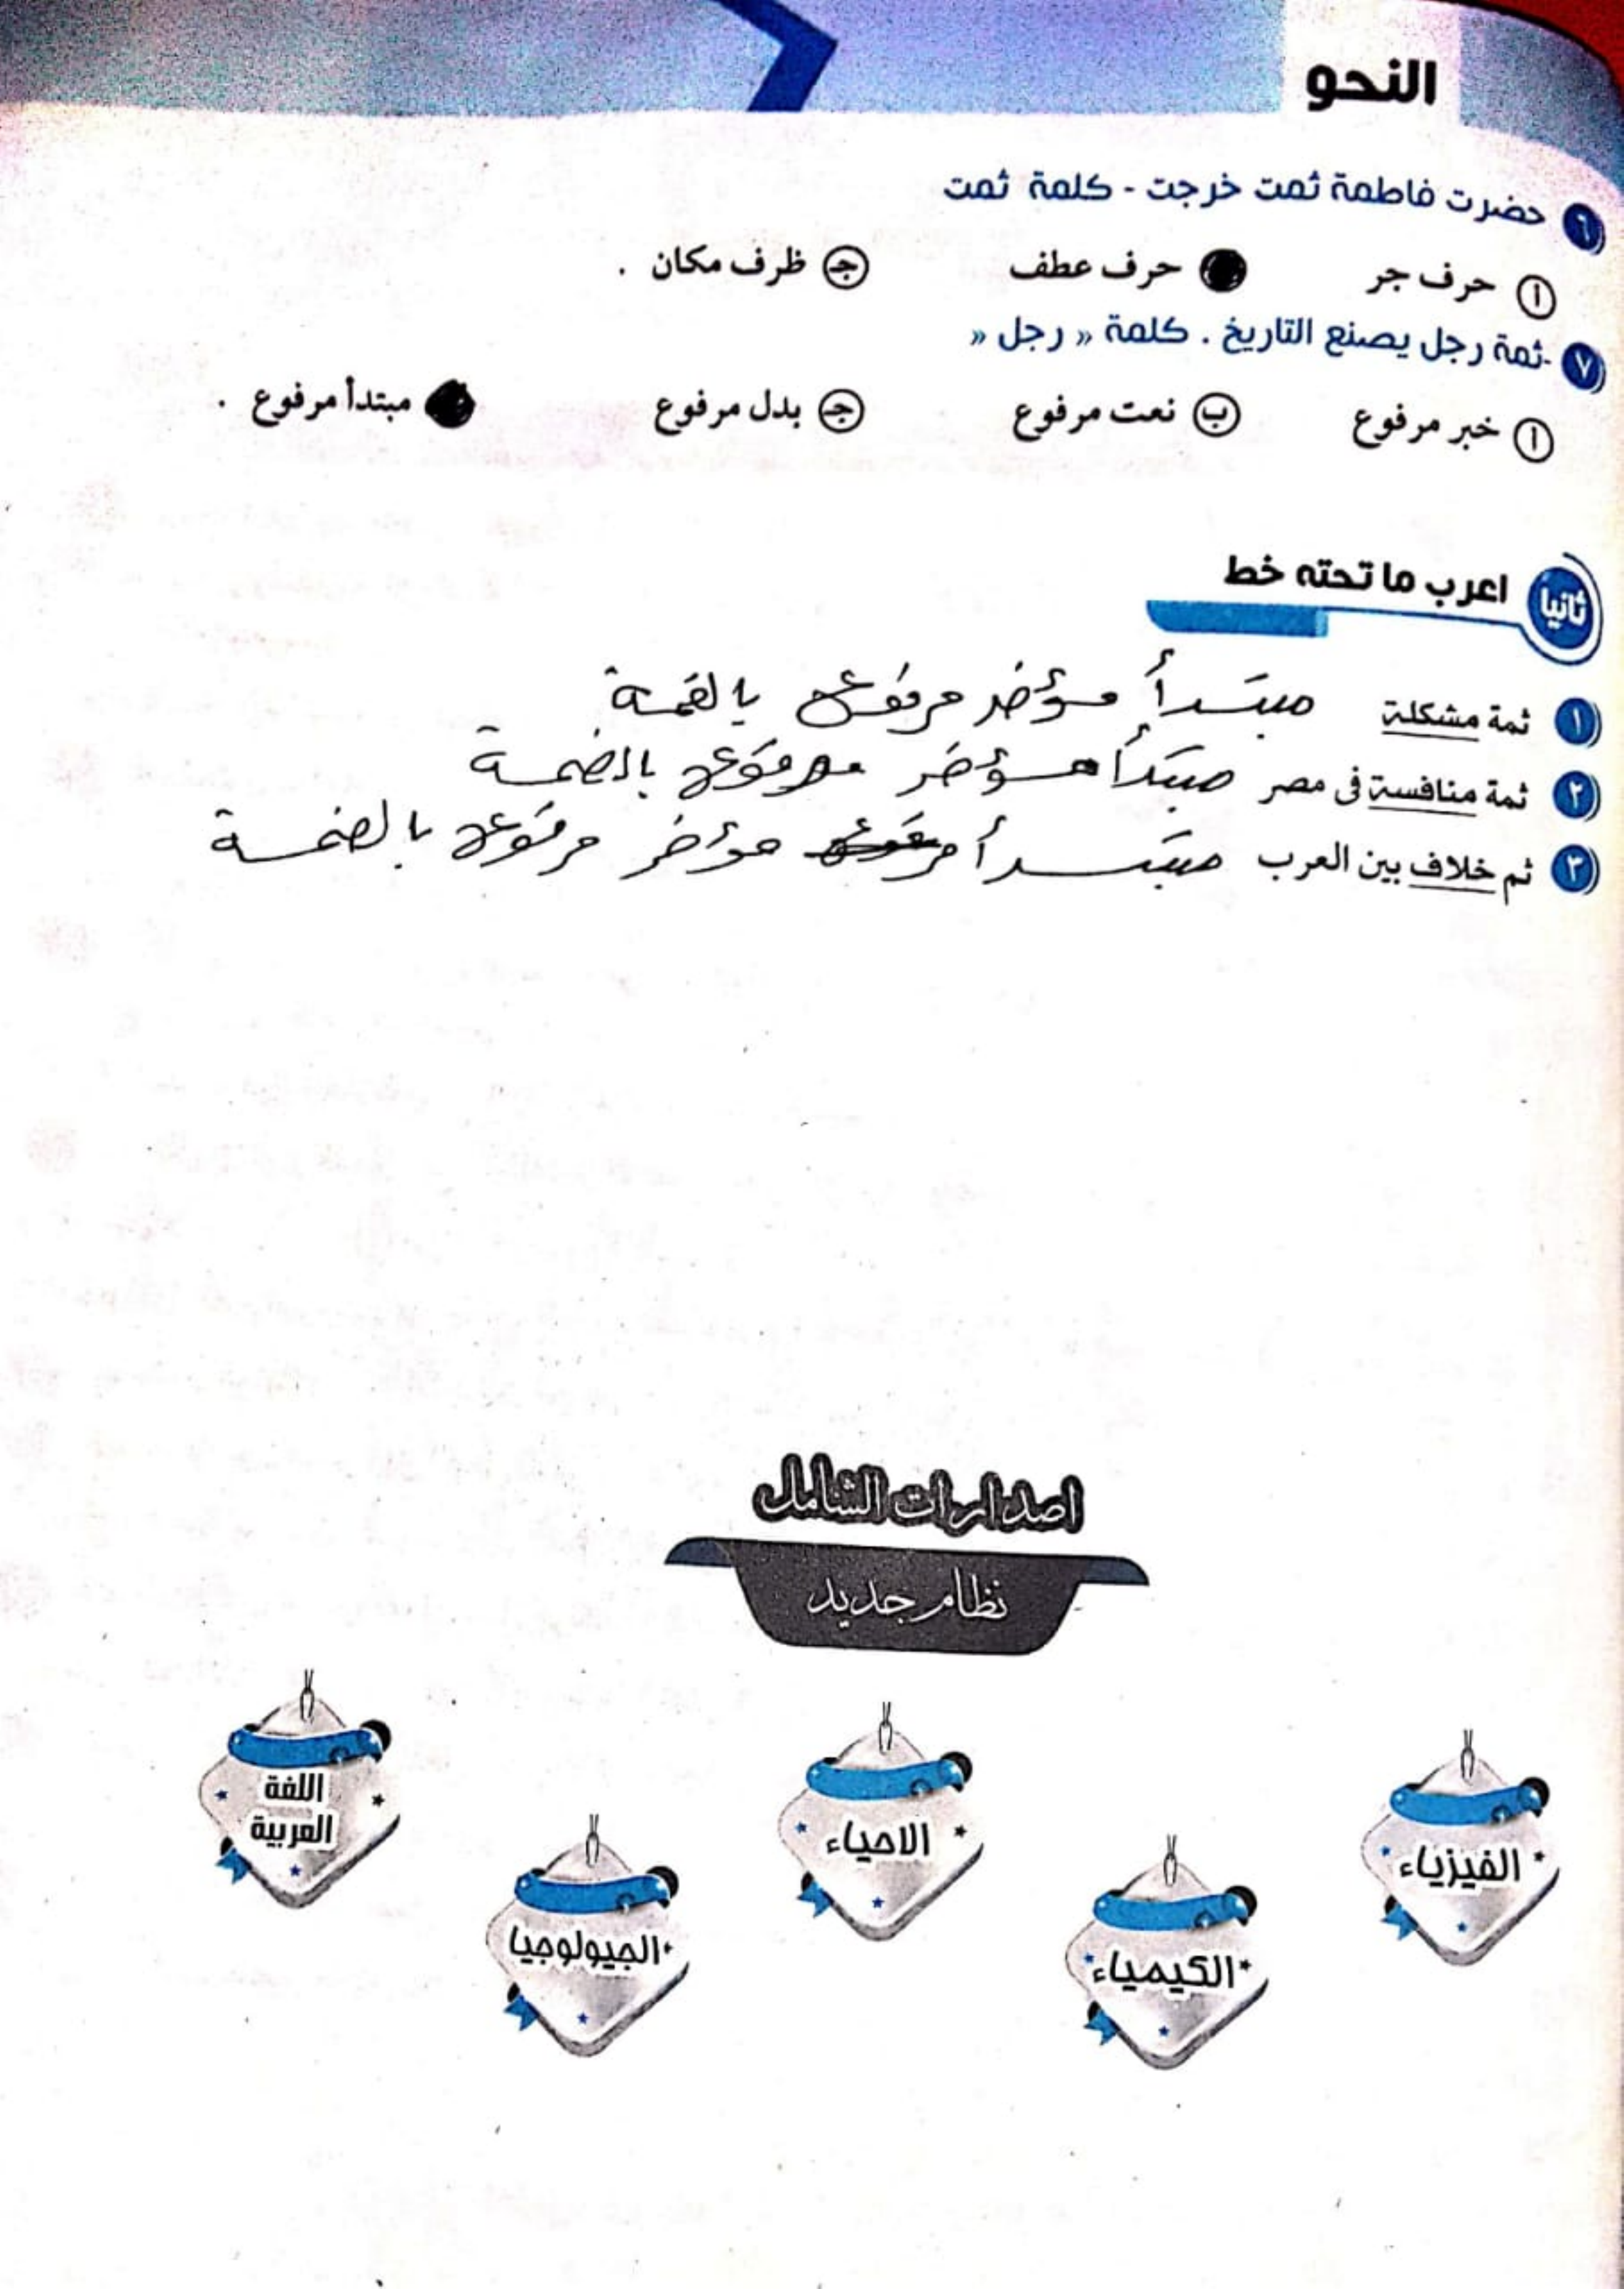 النحو
٦ حضرت فاطمة ثمت خرجت - كلمة ثمت
أ حرف جر حرف عطف جـ ظرف مكان .
٧ -ثمة رجل يصنع التاريخ . كلمة « رجل «
أ خبر مرفوع ب نعت مرفوع جـ بدل مرفوع مبتدأ مرفوع .
ثانيا اعرب ما تحته خط
١ ثمة مشكلة مبتدأ مؤخر مرفوع بالضمة
٢ ثمة منافسة فى مصر مبتدأ مؤخر مرفوع بالضمة
٣ ثم خلاف بين العرب مبتدأ مرفوع مؤخر مرفوع بالضمة
اصدارات الشامل
نظام جديد
الفيزياء
الكيمياء
الاحياء
الجيولوجيا
اللغة
العربية